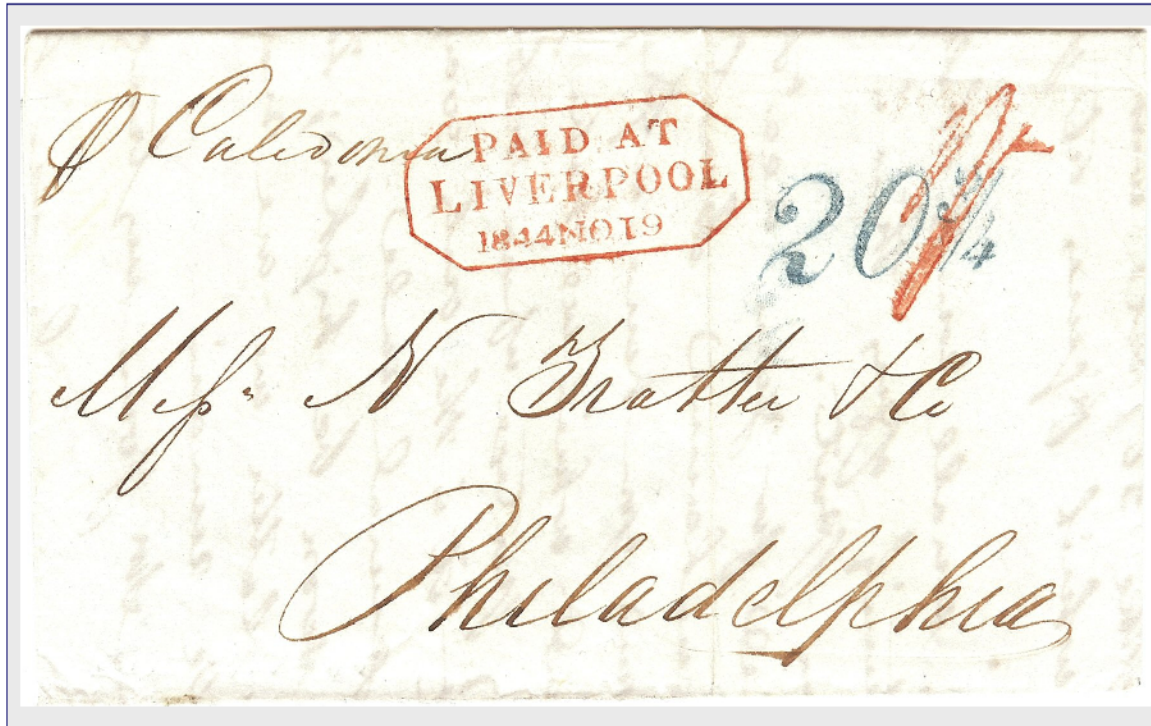 p Caledonia
PAID AT
LIVERPOOL
1844NO19
20 3/4
1/-
Messrs N Trotter & Co
Philadelphia